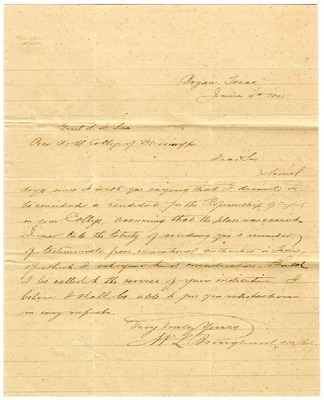 Bryan Texas
June
Genl S. D. Lee
Pres A & M College of Mississippi
Dear Sir
Several
days since I wrote you saying that I desired to
be considered a candidate for the Professorship of English
in your College. Assuming that the place was vacant
I now take the liberty of sending you a number
of testimonials from educational authorities in Texas
of which I ask your kind consideration. Should
I be called to the service of your institution I
believe I shall be able to give you satisfaction
in every respect.
Very truly Yours
W. L. Bringhurst